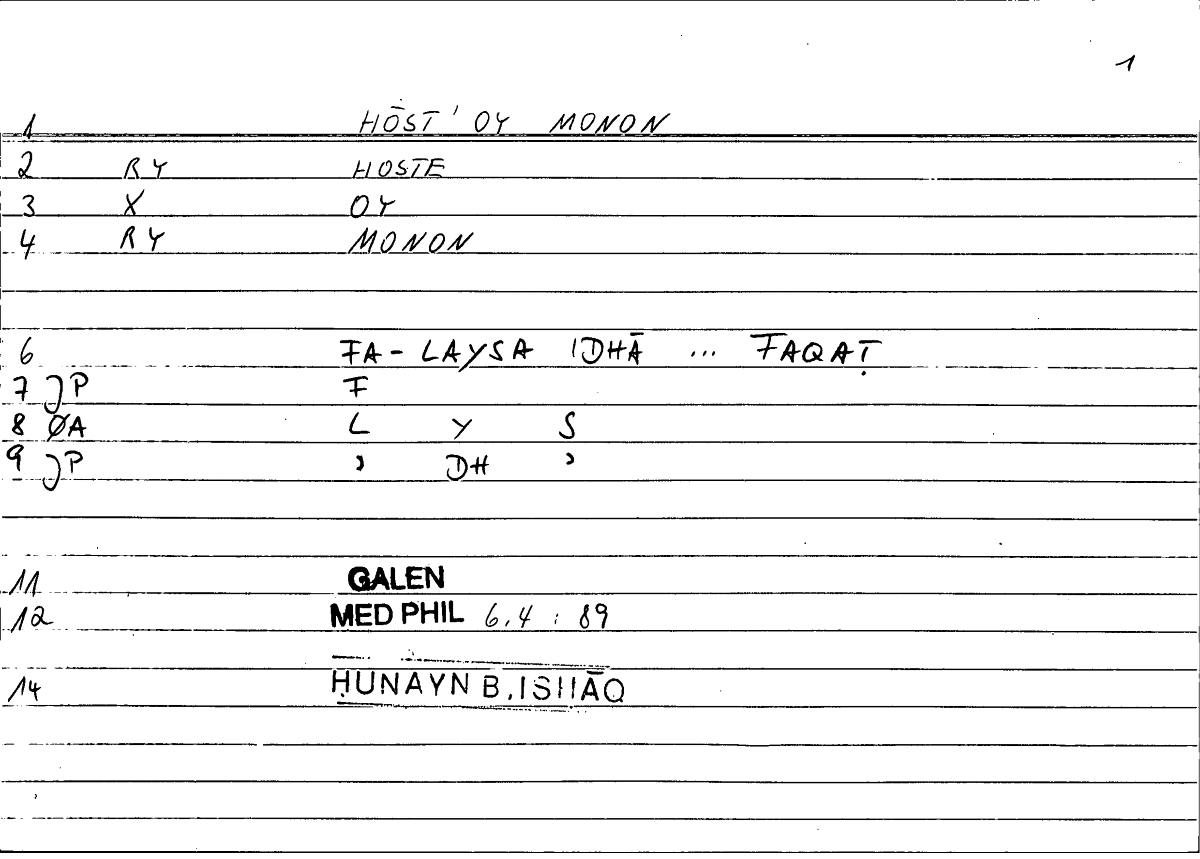 1
1 HŌST' OY MONON
2 RY HOSTE
3 X OY
4 RY MONON
6 FA-LAYSA IDHĀ ... FAQAṬ
7 JP F
8 ØA L Y S
9 JP ' DH '
11 GALEN
12 MED PHIL 6.4 : 89
14 ḤUNAYN B. ISḤĀQ